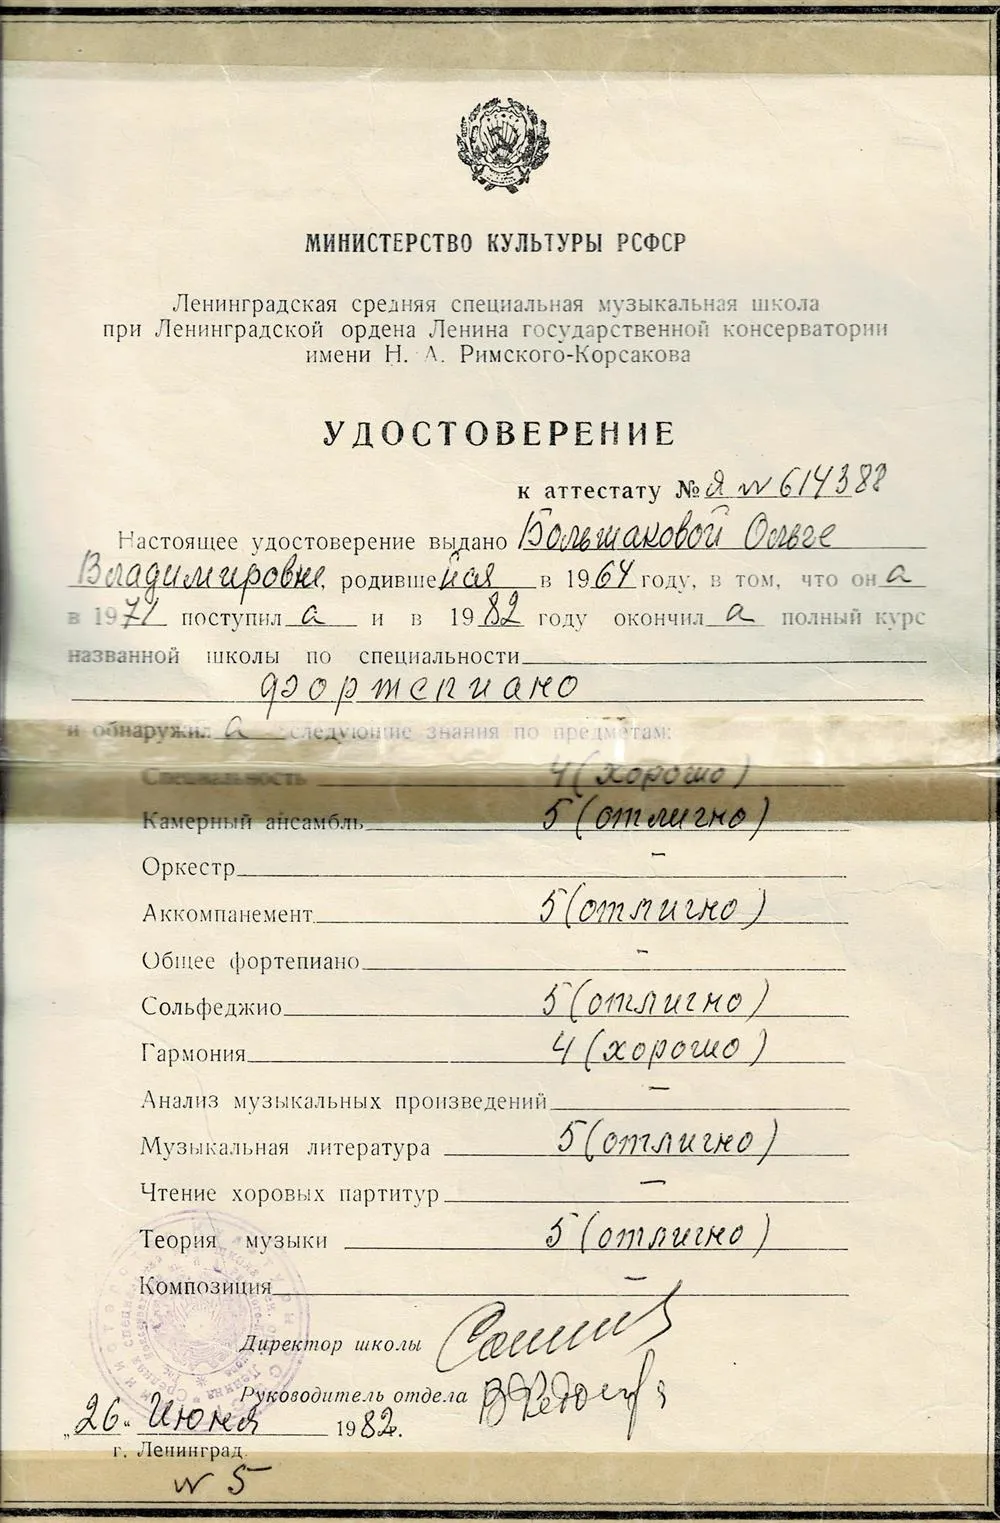 МИНИСТЕРСТВО КУЛЬТУРЫ РСФСР
Ленинградская средняя специальная музыкальная школа
при Ленинградской ордена Ленина государственной консерватории
имени Н. А. Римского-Корсакова
УДОСТОВЕРЕНИЕ
к аттестату № Я № 614388
Настоящее удостоверение выдано Большаковой Ольге
Владимировне, родившейся в 1964 году, в том, что она
в 1971 поступила и в 1982 году окончила полный курс
названной школы по специальности
фортепиано
и обнаружила следующие знания по предметам:
Специальность 4 (хорошо)
Камерный ансамбль 5 (отлично)
Оркестр –
Аккомпанемент 5 (отлично)
Общее фортепиано –
Сольфеджио 5 (отлично)
Гармония 4 (хорошо)
Анализ музыкальных произведений –
Музыкальная литература 5 (отлично)
Чтение хоровых партитур –
Теория музыки 5 (отлично)
Композиция –
Директор школы
Руководитель отдела
„26“ Июня 1982.
г. Ленинград.
№ 5